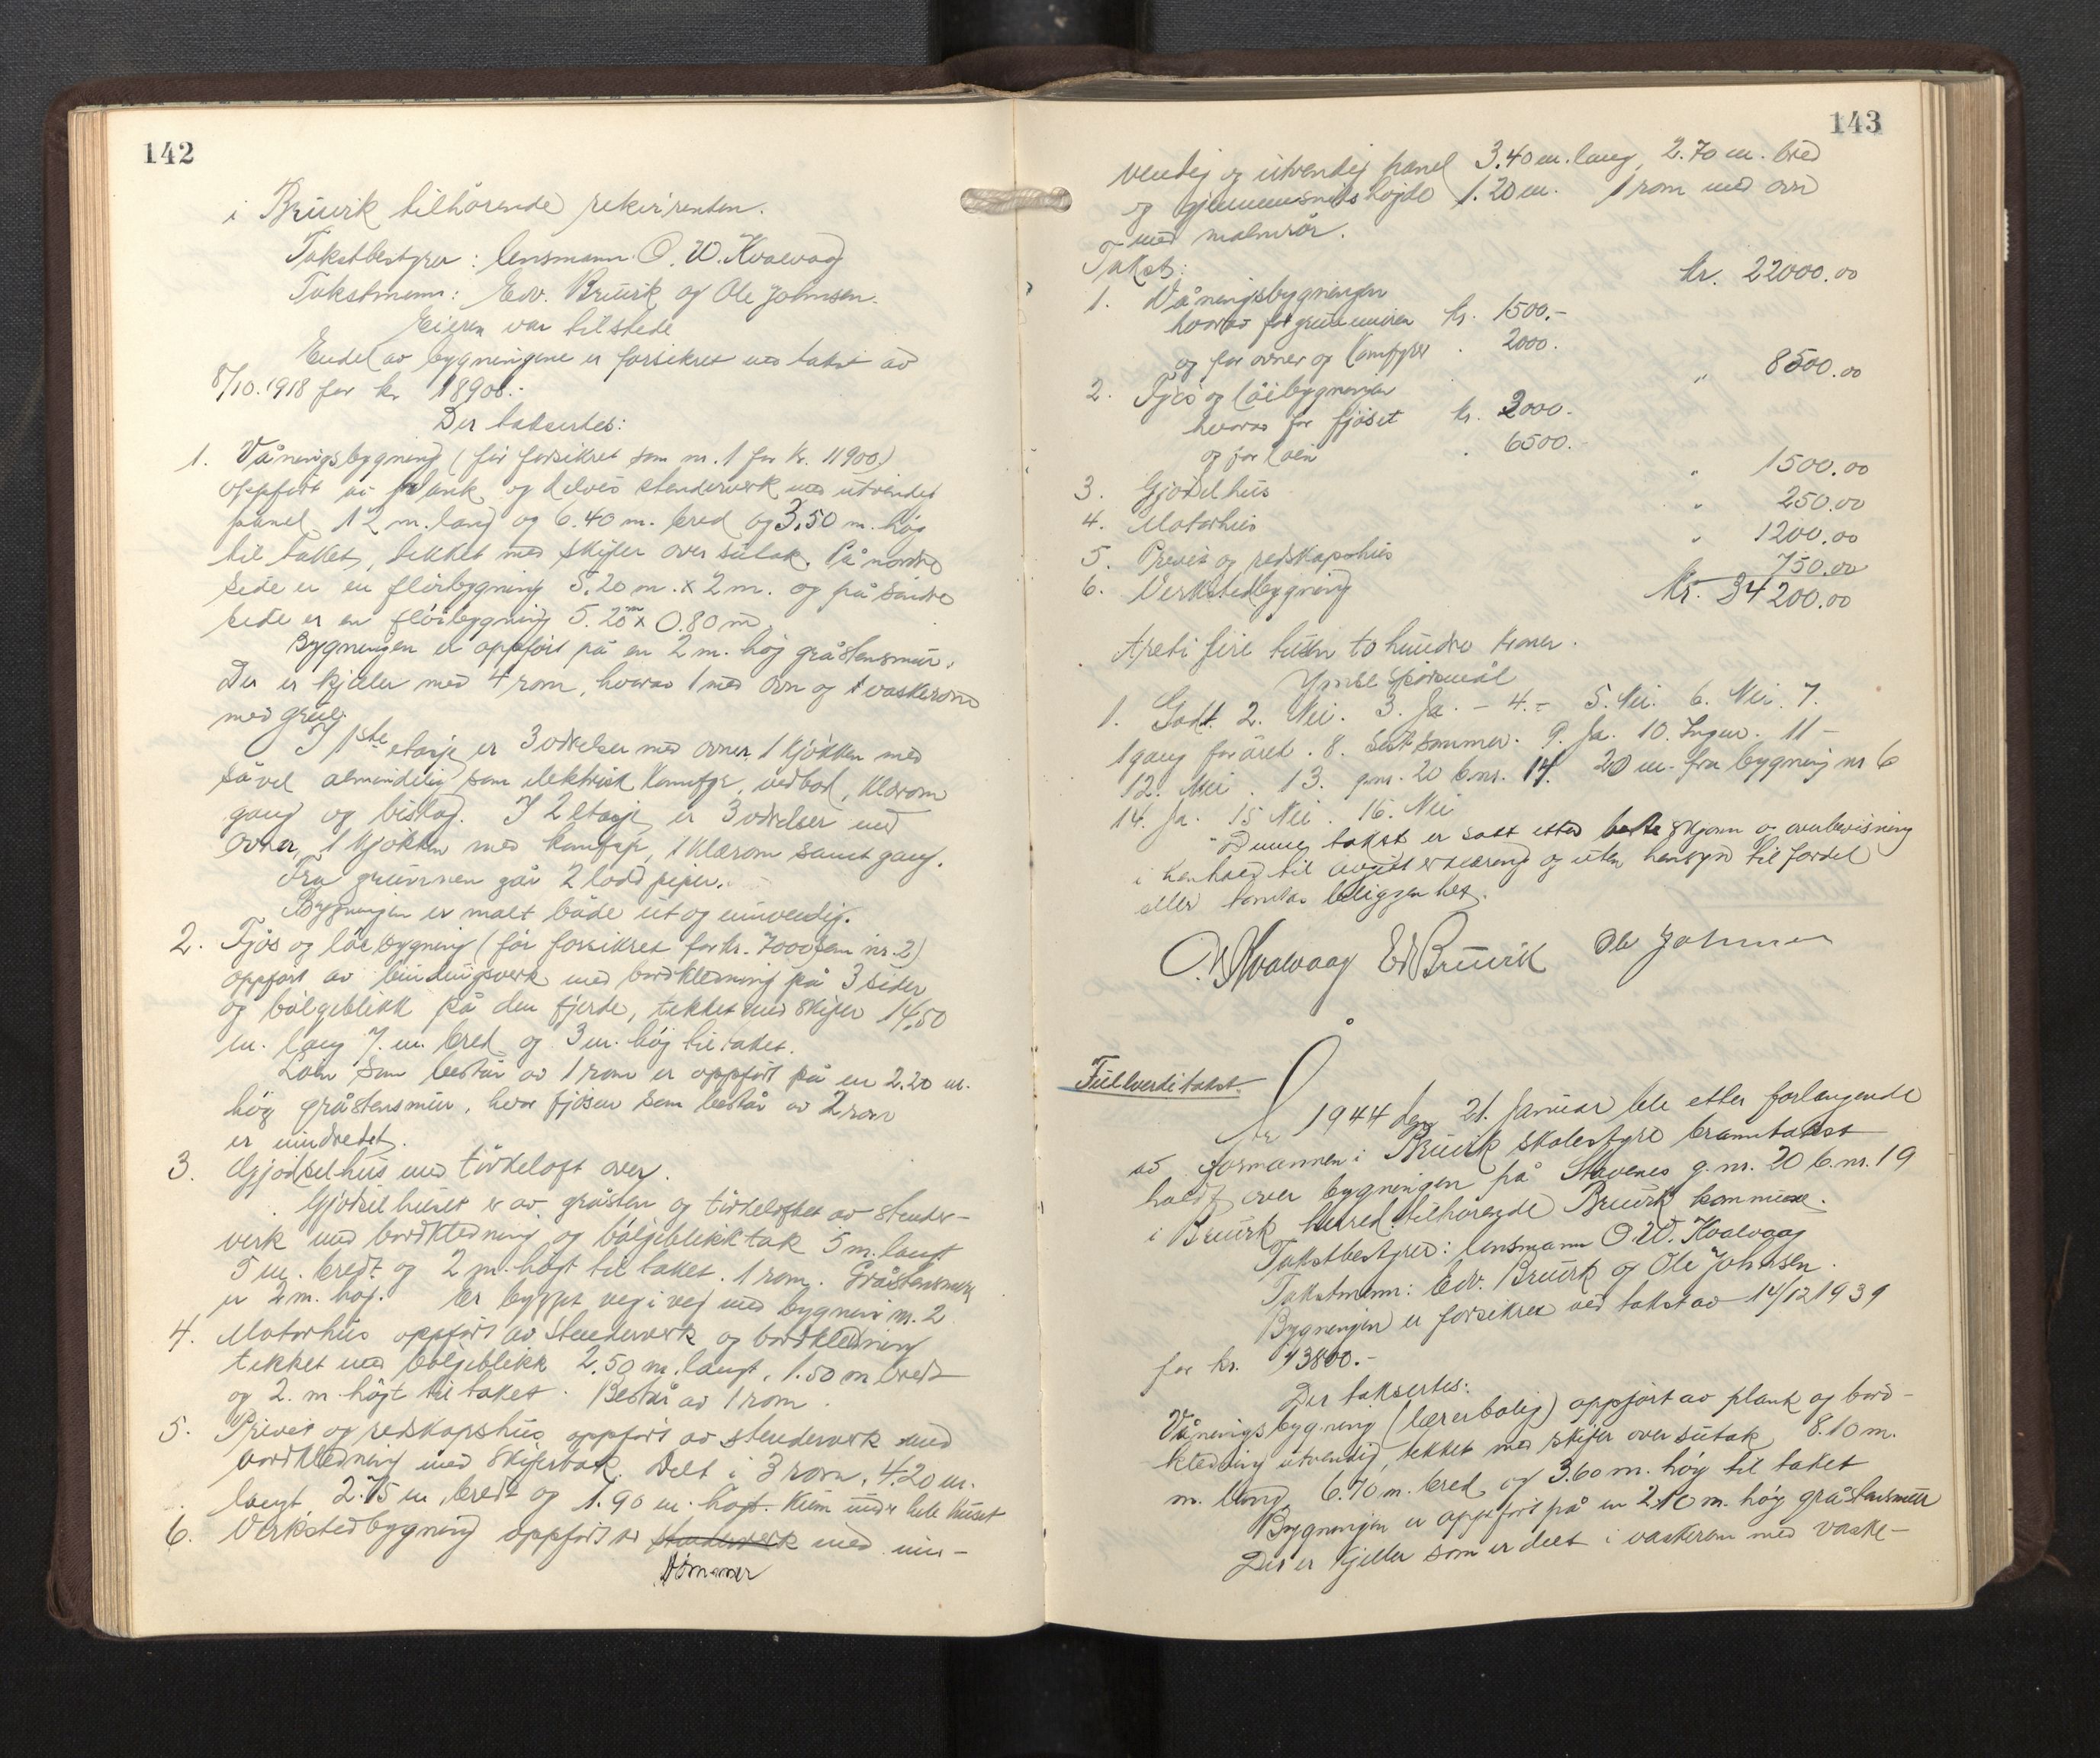 142
i Bruvik tilhørende rekvirenten.
Takstbestyrer: lensmann O. W. Kvalvaag
Takstmenn: Edv. Bruvik og Ole Johnsen.
Eieren var tilstede
Endel av bygningene er forsikret ved takst av
8/10.1918 for kr 18900.-
Der taksertes:
1. Våningsbygning (før forsikret som nr. 1 for kr. 11900)
oppført av plank og delvis stenderverk med utvendig
panel 12 m. lang og 6.40 m. bred og 3.50 m. høg
til taket, tekket med skifer over sutak. På nordre
side er en fløibygning 5.20 m. x 2 m. og på søndre
side er en fløibygning 5.20 m x 0.80 m
Bygningen er oppført på en 2 m. høg gråstensmur.
Der er kjeller med 4 rom, hvorav 1 med ovn og 1 vaskerom
med
I 1ste etasje er 3 værelser med ovner, 1 kjøkken med
såvel almindelig som elektrisk komfyr, vedbod, klærom
gang og bislag. I 2 etasje er 3 værelser med
ovner, 1 kjøkken med komfyr, 1 klærom samt gang.
Fra grunnen går 2 lodd piper.
Bygningen er malt både ut og innvendig.
2. Fjøs og løebygning (før forsikret for kr. 7000 som nr. 2)
oppført av bindingsverk med bordkledning på 3 sider
og bølgeblikk på den fjerde, tekket med skifer 14.50
m. lang 7. m. bred og 3 m. høg til taket.
Løen som består av 1 rom er oppført på en 2.20 m.
høg gråstensmur, hvor fjøsen som består av 2 rom
er innredet.
3. Gjødselhus med tørkeloft over.
Gjødselhuset er av gråsten og tørkeloftet av stender-
verk med bordkledning og bølgeblikktak 5 m. langt
5 m. bredt og 2 m. høgt til taket. 1 rom. Gråstensmur
er 2 m. høg. Er bygget veg i veg med bygning nr. 2
4. Motorhus oppført av stenderverk og bordkledning
tekket med bølgeblikk 2.50 m. langt, 1.50 m bredt
og 2. m. høgt til taket. Består av 1 rom.
5. Privet og redskapshus oppført av stenderverk med
bordkledning med skifertak. Delt i 3 rom, 4.20 m.
langt, 2.75 m. bredt og 1.90 m. høgt. under hele huset
6. Verkstedbygning oppført av stenderverk med inn-
tømmer
143
vendig og utvendig panel 3.40 m. lang, 2.70 m. bred
og gjennemsnits høgde 1.20 m. 1 rom med ovn
med malmrør.
Takst:
1. Våningsbygningen kr. 22000.00
hvorav for grunnmuren kr. 1500.-
og for ovner og komfyrer . 2000.
2. Fjøs og løebygningen " 8500.00
hvorav for fjøset kr. 2000.-
og for løen . 6500.-
3. Gjødselhus " 1500.00
4. Motorhus " 250.00
5. Privet og redskapshus " 1200.00
6. Verkstedbygning 750.00
Kr. 34200.00
Treti fire tusen to hundre kroner.
Ymse spørsmål
1. Godt 2. Nei. 3. Ja. - 4. - 5. Nei. 6. Nei. 7.
1 gang for året. 8. sommer. 9. Ja. 10. Ingen. 11 -
12. Nei. 13. g.nr. 20 b.nr. 14. 20 m. fra bygning nr 6
14. Ja. 15 Nei. 16. Nei
Denne takst er satt etter beste skjønn og overbevisning
i henhold til avgitt erklæring og uten hensyn til fordel
eller tomtens beliggenhet.
O.W. Kvalvaag Edv Bruvik Ole Johnsen
Fullverditakst.
År 1944 den 21. januar ble etter forlangende
av formannen i Bruvik skolestyre branntakst
holdt over bygningen på Stavenes g.nr. 20 b.nr. 19
i Bruvik herred tilhørende Bruvik kommune.
Takstbestyrer: lensmann O.W. Kvalvaag
Takstmenn: Edv. Bruvik og Ole Johnsen.
Bygningen er forsikret ved takst av 14/12 1939
for kr. 13800.-
Der taksertes:
Våningsbygning (lærerbolig) oppført av plank og bord-
kledning utvendig, tekket med skifer over sutak 8.10 m.
m. lang 6.70 m. bred og 3.60 m. høg til taket
Bygningen er oppført på en 2.10 m. høg gråstensmur
Der er kjeller som er delt i vaskerom med vaske-